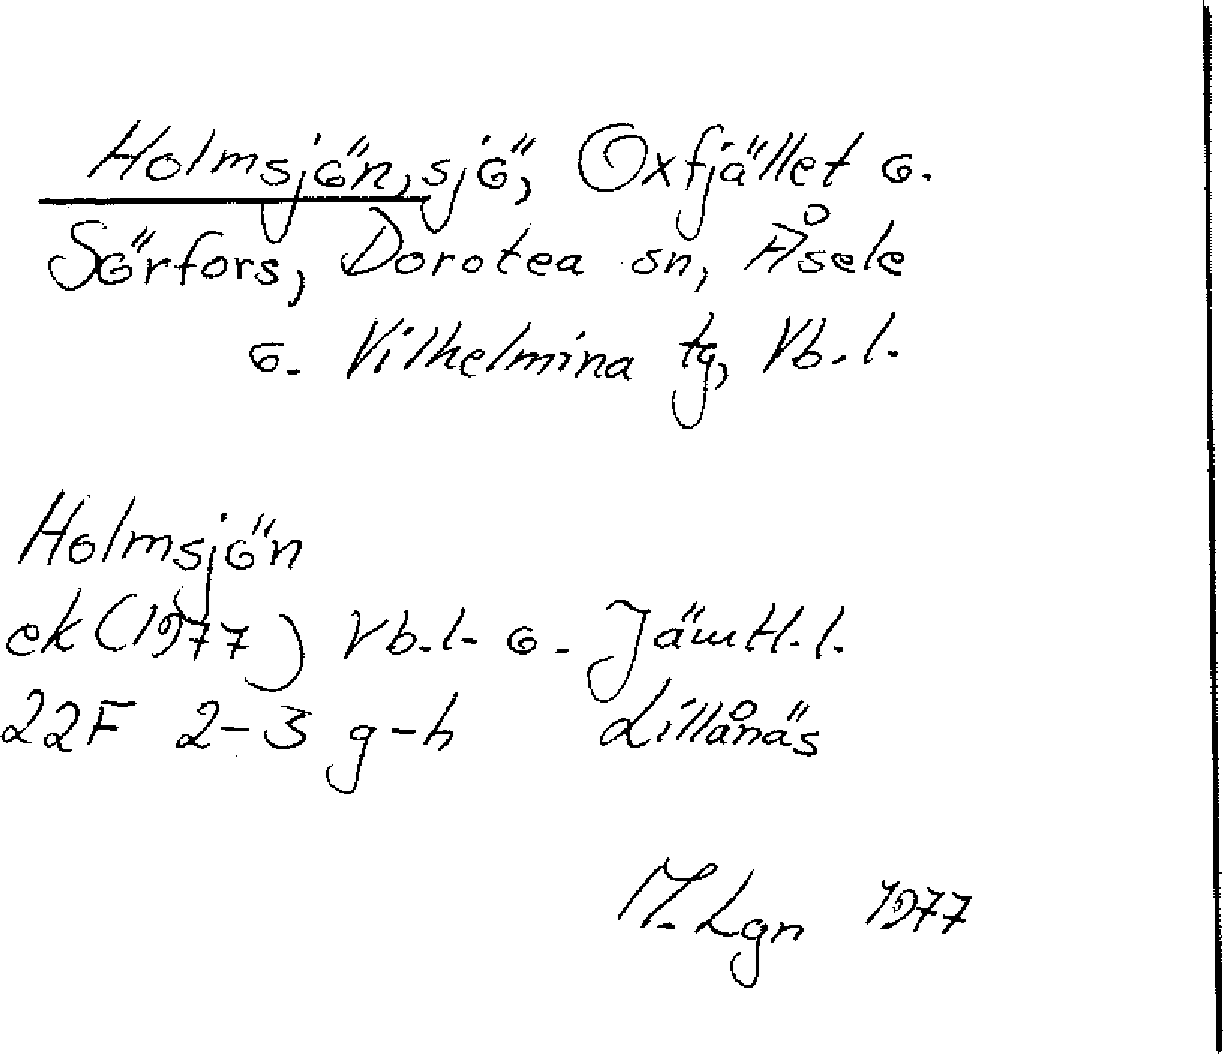 Holmsjön, sjö, Oxfjället o.
Sörfors, Dorotea sn, Åsele
o. Vilhelmina tg, Vb.l.
Holmsjön
ek (1977) Vb.l. o. Jämtl.l.
22F 2-3 g-h Lillånäs
M. Lgn 1977